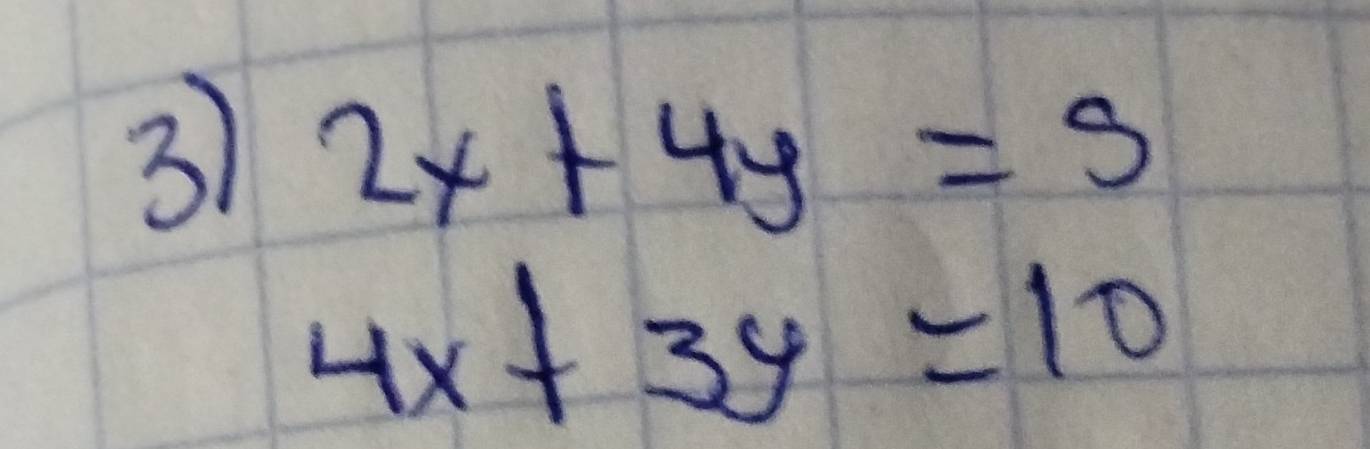 3) 2x + 4y = 5
4x + 3y = 10